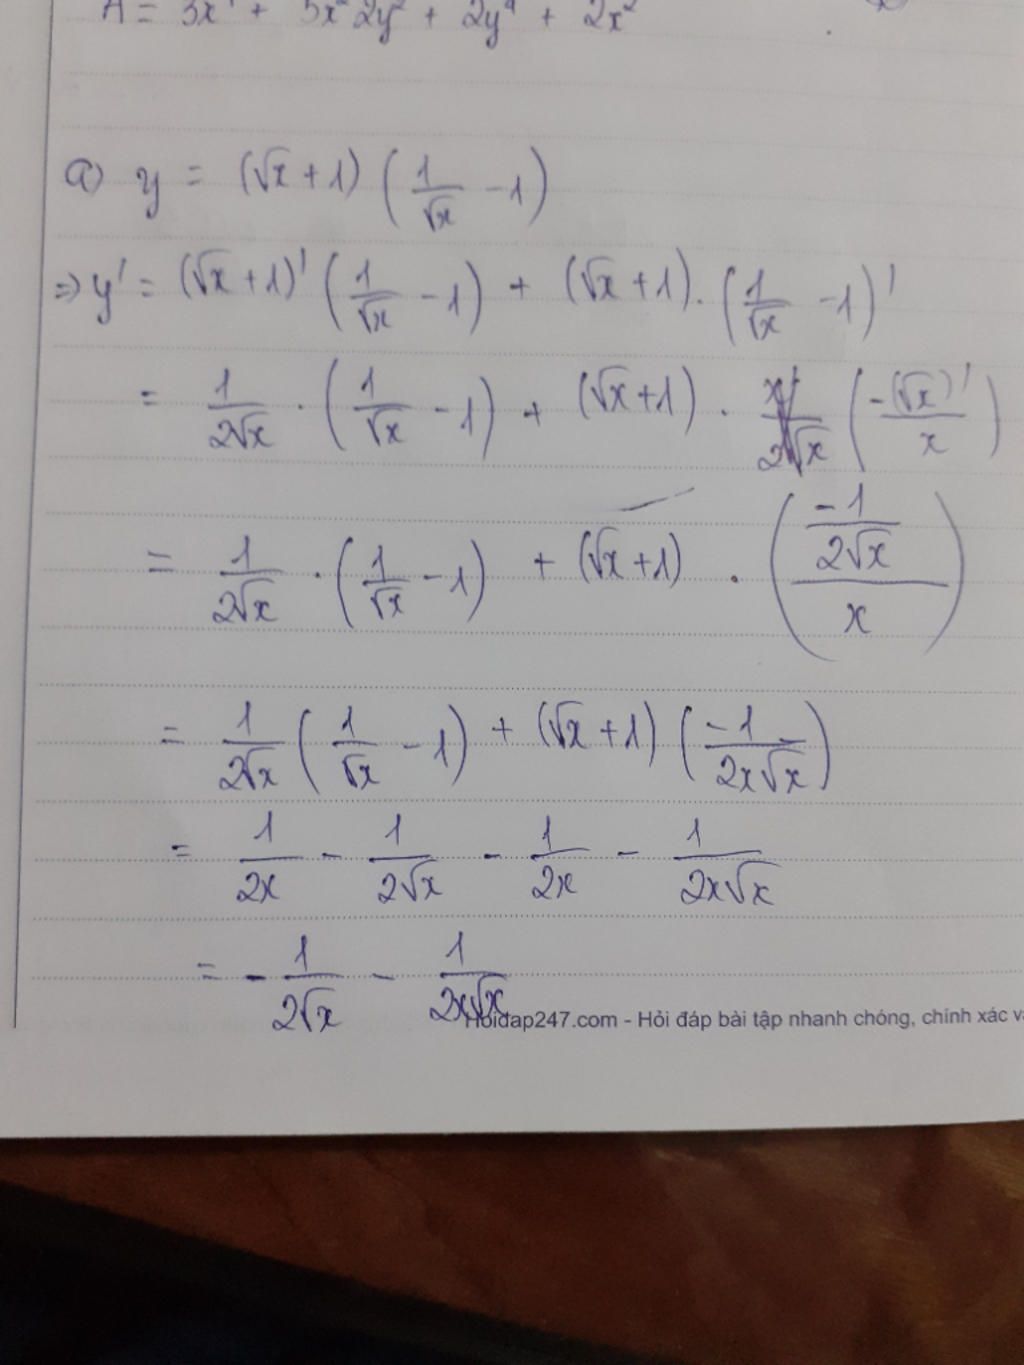 A = 3x⁴ + 5x² 2y² + 2y⁴ + 2x²
a) y = (√x + 1) (1/√x - 1)
⇒ y' = (√x + 1)' (1/√x - 1) + (√x + 1) . (1/√x - 1)'
= 1/2√x . (1/√x - 1) + (√x + 1) . (-(√x)'/x)
= 1/2√x . (1/√x - 1) + (√x + 1) . ((-1/2√x)/x)
= 1/2√x (1/√x - 1) + (√x + 1) (-1/2x√x)
= 1/2x - 1/2√x - 1/2x - 1/2x√x
= - 1/2√x - 1/2x√x
Hoidap247.com - Hỏi đáp bài tập nhanh chóng, chính xác